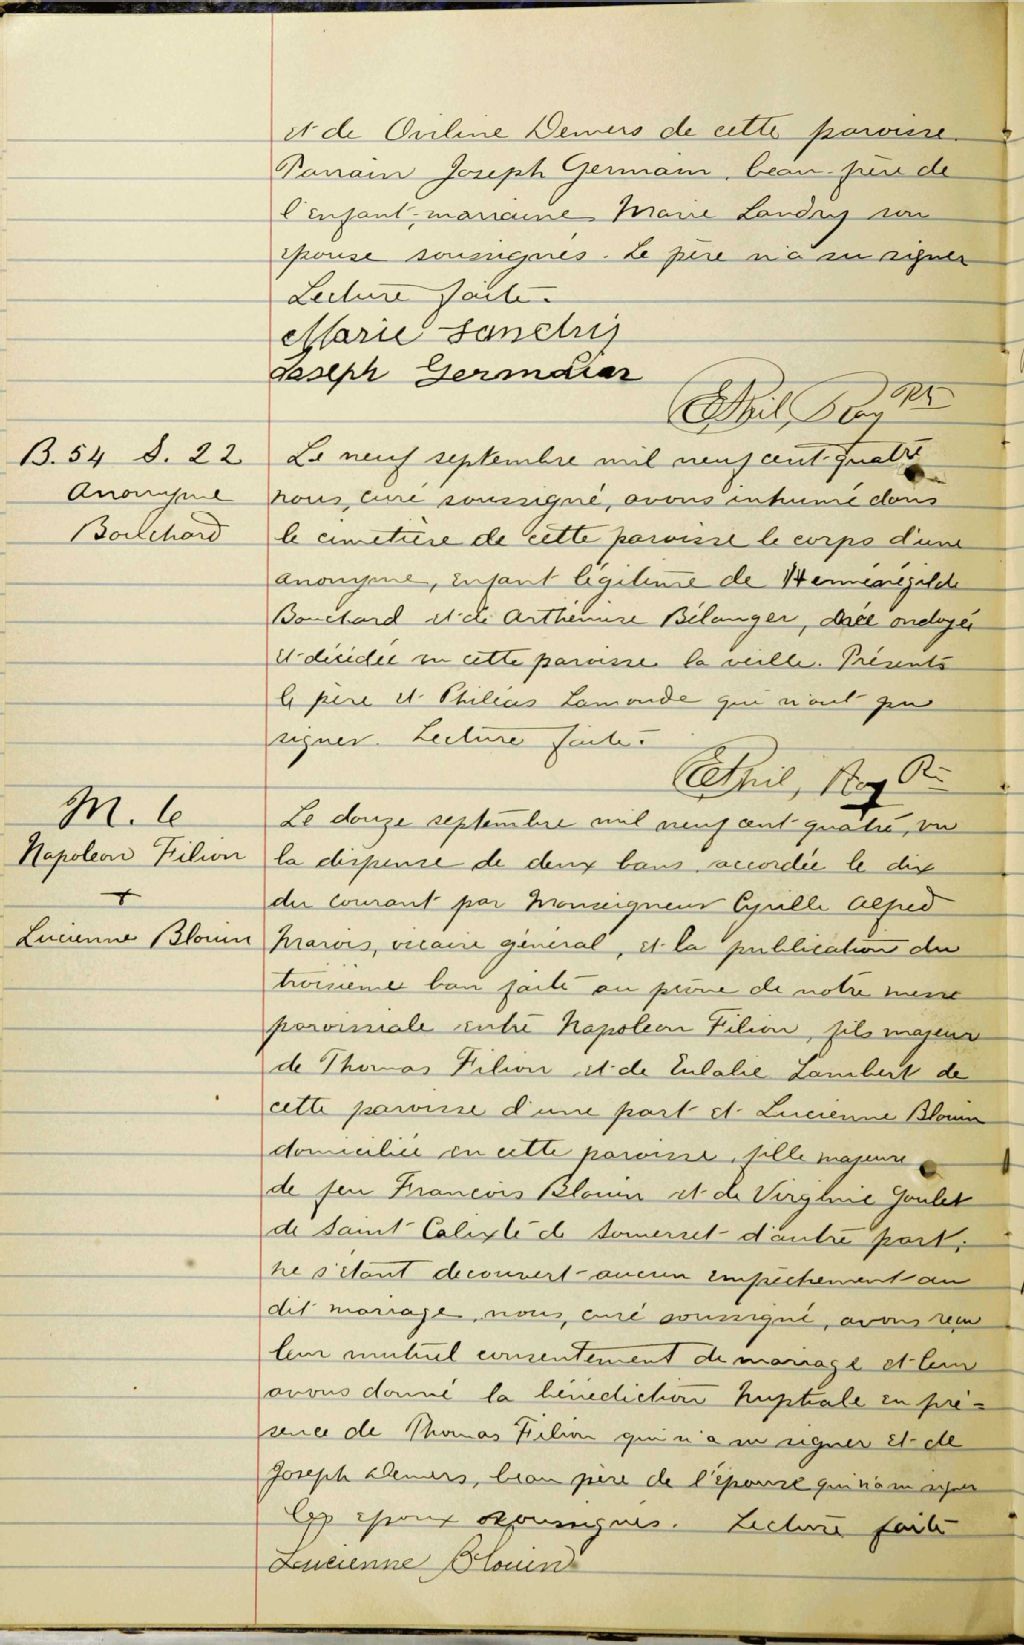 et de Oviline Demers de cette paroisse.
Parrain Joseph Germain, beau-père de
l'enfant, marraine Marie Landry son
épouse soussignés. Le père n'a su signer
Lecture faite.
Marie Landry
Joseph Germain
E Phil, Roy Ptr
B. 54 S. 22
Anonyme
Bouchard
Le neuf septembre mil neuf cent quatre
nous, curé soussigné, avons inhumé dans
le cimetière de cette paroisse le corps d'une
anonyme, enfant légitime de Herménégilde
Bouchard et de Arthémise Bélanger, née ondoyée
et décédée en cette paroisse la veille. Présents
le père et Philéas Lamonde qui n'ont pu
signer. Lecture faite.
E Phil, Roy Ptr
M. 16
Napoleon Filion
+
Lucienne Blouin
Le douze septembre mil neuf cent quatre, vu
la dispense de deux bans accordée le dix
du courant par Monseigneur Cyrille Alfred
Marois, vicaire général, et la publication du
troisième ban faite au prône de notre messe
paroissiale entre Napoléon Filion, fils majeur
de Thomas Filion et de Eulalie Lambert de
cette paroisse d'une part et Lucienne Blouin
domiciliée en cette paroisse, fille majeure
de feu François Blouin et de Virginie Goulet
de Saint Calixte de Somerset d'autre part;
ne s'étant decouvert aucun empêchement au
dit mariage, nous, curé soussigné, avons reçu
leur mutuel consentement de mariage et leur
avons donné la bénédiction nuptiale en pré=
sence de Thomas Filion qui n'a su signer et de
Joseph Demers, beau père de l'épouse qui n'a su signer
les epoux soussignés. Lecture faite
Lucienne Blouin